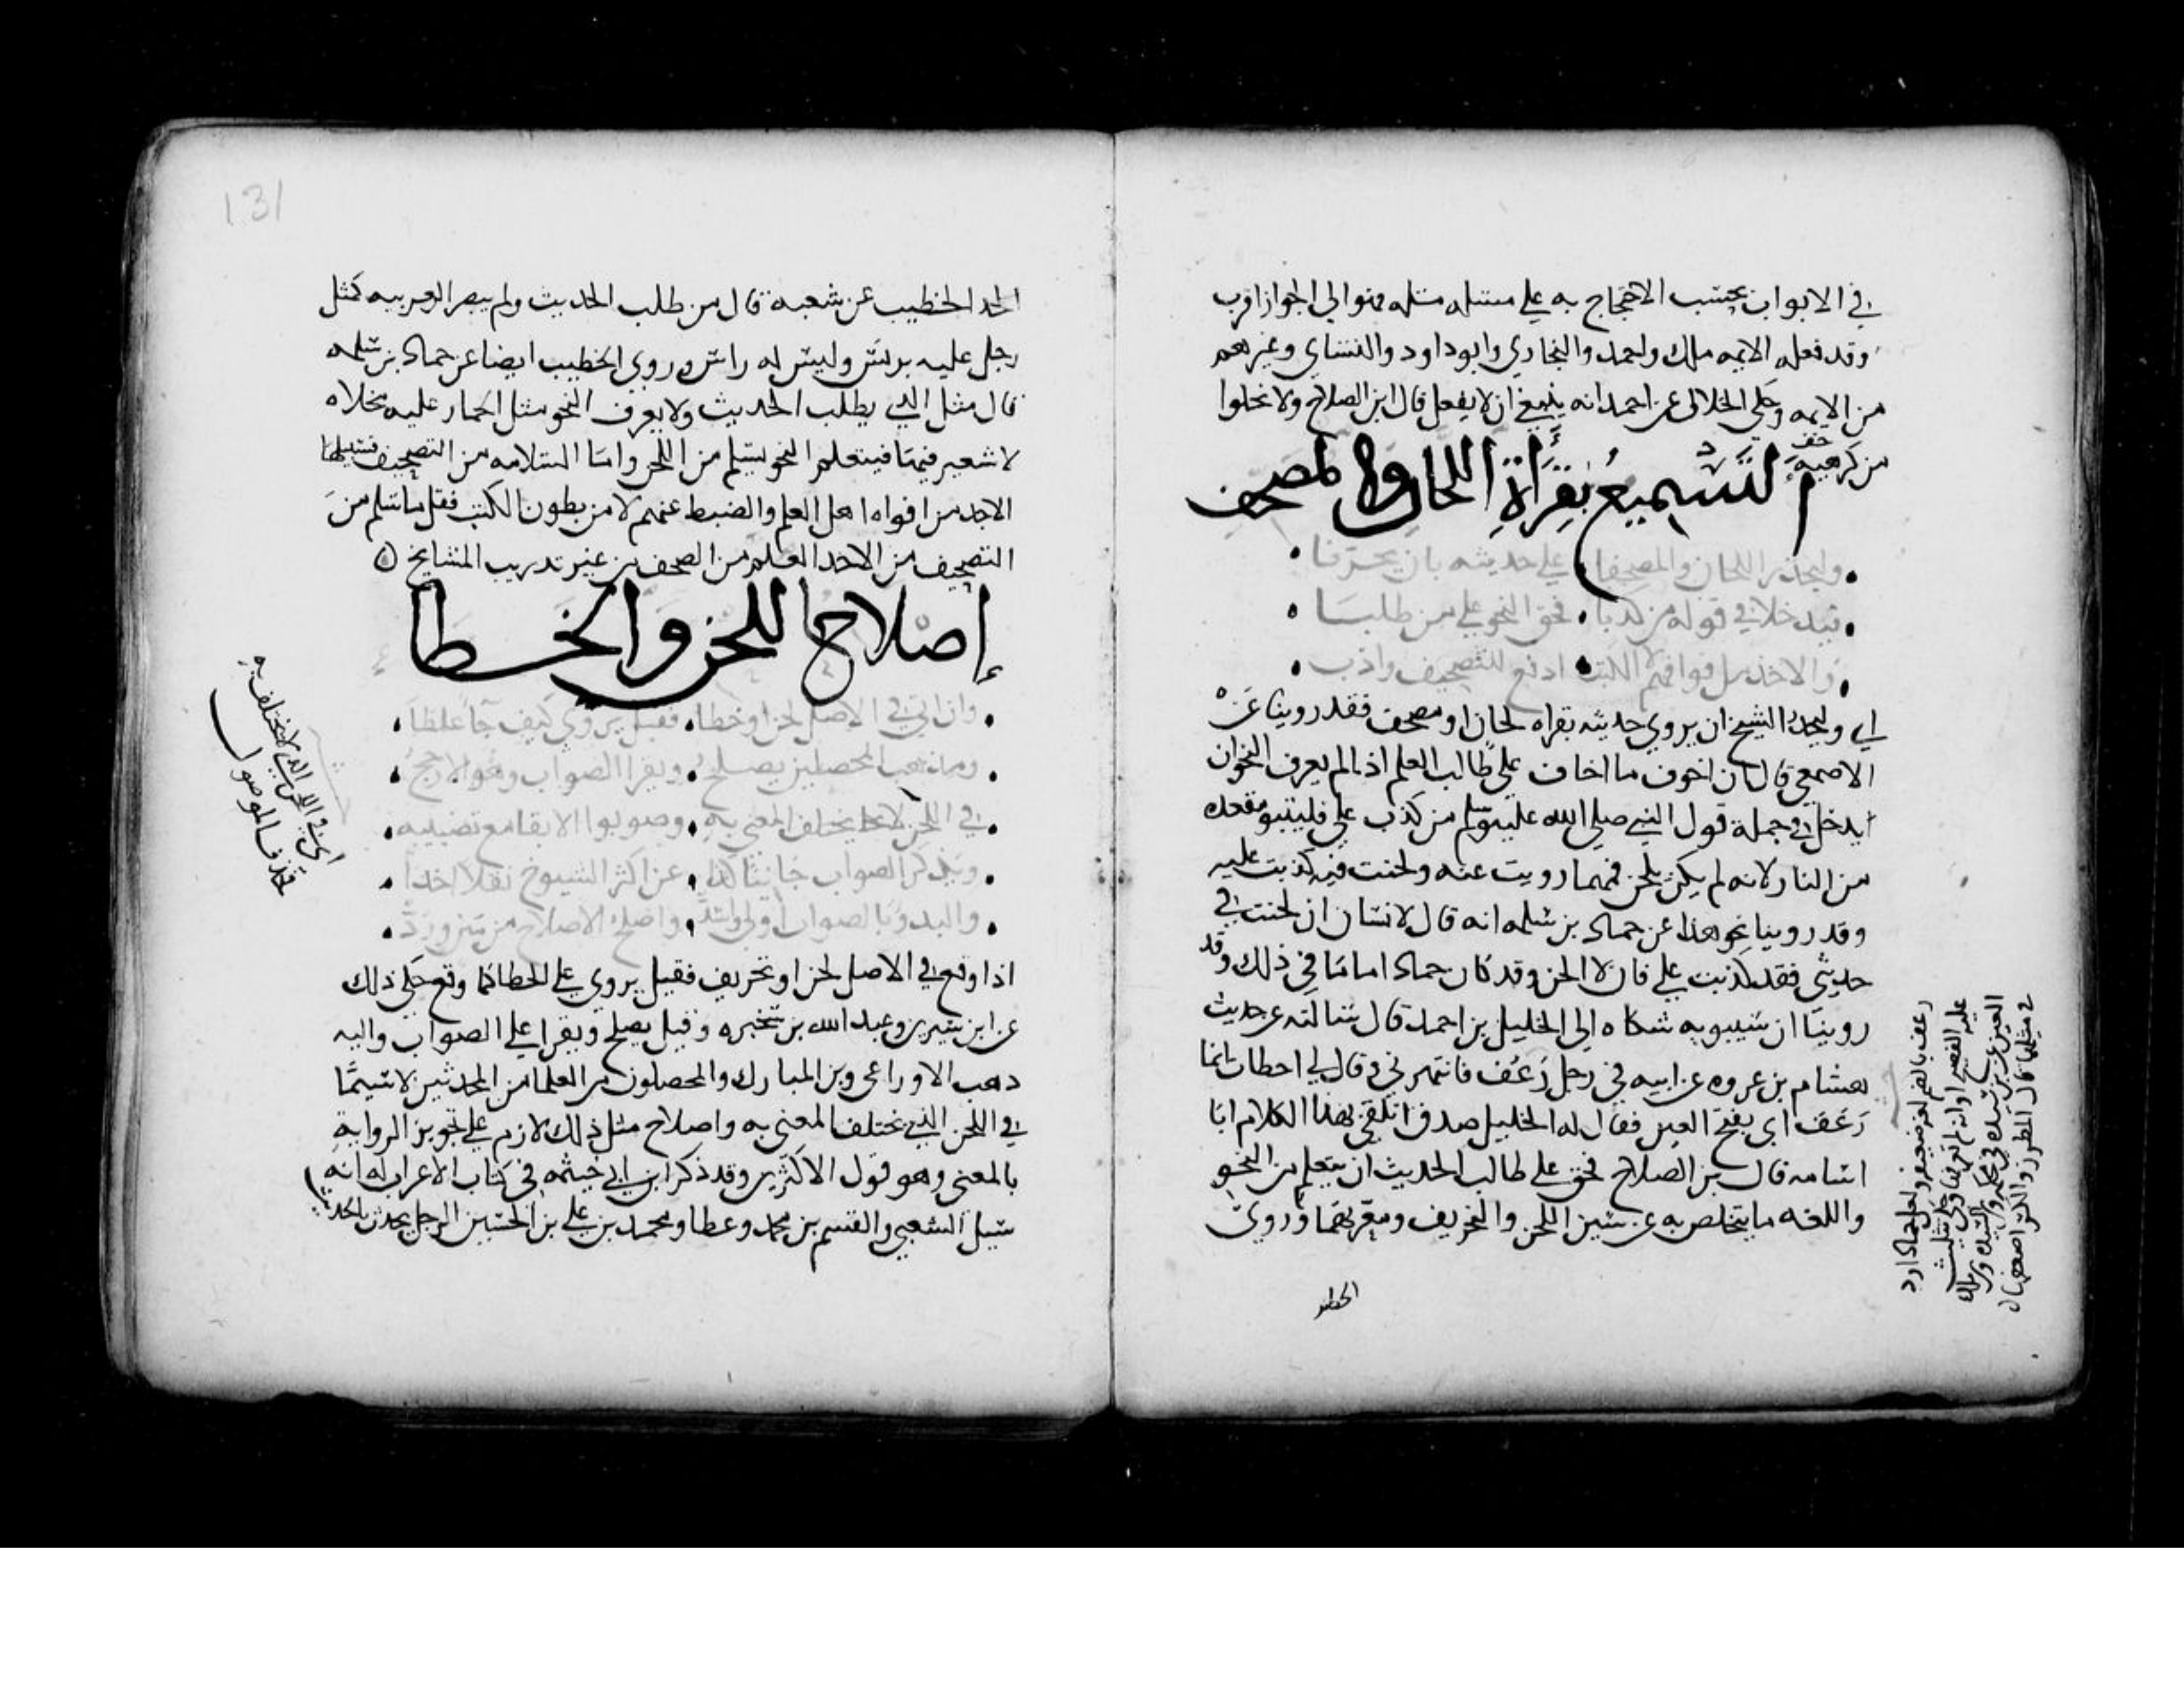 في الابواب بحسب الاحتجاج به علي مسئله مسئله فهو الي الجواز اقرب
وقد فعله الايمه ملك واحمد والبخاري وابو داود والنساي وغيرهم
من الايمه وحكي الخلال عن احمد انه ينبغي ان لا يفعل قال ابن الصلاح ولا يخلوا
من كرهيه
خف
التَّسْمِيعُ بِقِرَأَةِ اللَّحَّانِ والمصحف
وليحذر اللحان والمصحفا علي حديثه بان يحرفا
فيدخلا في قوله من كذبا فحق النحو علي من طلبا
والاخذ من افواههم لا الكتب ادفع للتصحيف واذب
اي وليحذر الشيخ ان يروي حديثه بقراه لحان او مصحف فقد روينا عَنْ
الاصمعي قال ان اخوف ما اخاف علي طالب العلم اذا لم يعرف النحو ان
يدخل في جملة قول النبي صلي الله عليه وسلم من كذب علي فليتبو مقعده
من النار لانه لم يكن يلحن فمهما رويت عنه ولحنت فيه كذبت عليه
وقد روينا نحو هذا عن حماد بن سلمه انه قال لانسان ان لحنت في
حديثي فقد كذبت علي فان لا الحن وقد كان حماد اماما في ذلك وقد
روينا ان سيبويه شكاه الي الخليل بن احمد قال سالته عن حديث
هشام بن عروه عن ابيه في رجل رَعُف فانتهرني وقال لي اخطات انما
رَعَف اي بفتح العين فقال له الخليل صدق اتلقي بهذا الكلام ابا
اسامه قال بن الصلاح فحق علي طالب الحديث ان يتعلم من النحو
واللغه ما يتخلص به عن شين اللحن والتحريف ومعرتهما وروي
الخطيب
رعف بالضم لغه ضعيفه ولعل حماد ارد
عليه الفصيح او انه لم
131
الحد الخطيب عن شعبه قال من طلب الحديث ولم يبصر العربيه كمثل
رجل عليه برنس وليس له راس وروي الخطيب ايضا عن حماد بن سلمه
قال مثل الذي يطلب الحديث ولا يعرف النحو مثل الحمار عليه مخلاه
لا شعير فيها فبتعلم النحو يسلم من اللحن واما السلامه من التصحيف فسبيلها
الاخذ من افواه اهل العلم والضبط عنهم لا من بطون الكتب فقل ما سلم من
التصحيف من الاخذ العلم من الصحف من غير تدريب المشايخ
إِصْلاح اللحن والخطا
وان اتي في الاصل لحن او خطا فقيل يروي كيف جا غلطا
ومذهب المحصلين يصلح ويقرا الصواب وهو الارجح
في اللحن لا يختلف المعني به وصوبوا الابقا مع تضبيبه
ويذكر الصواب جانبا كذا عن اكثر الشيوخ نقلا اخذا
والبدو بالصواب اولي واسد واصلح الاصلاح من متن ورد
اي في اللحن الذي لا يختلف به
فحذف الموصول
اذا وقع في الاصل لحن او تحريف فقيل يروي علي الخطا كما وقع حكي ذلك
عن ابن سيرين وعبد الله بن سخبره وقيل يصلح ويقرا علي الصواب واليه
ذهب الاوزاعي وبن المبارك والمحصلون من العلما من المحدثين لا سيما
في اللحن الذي يختلف المعني به واصلاح مثل ذلك لازم علي تجويز الرواية
بالمعني وهو قول الاكثرين وقد ذكر ابن ابي خيثمه في كتاب الاعراب له انه
سيل الشعبي والقسم بن محمد وعطا ومحمد بن علي بن الحسين الرجل يحدث بالحديث